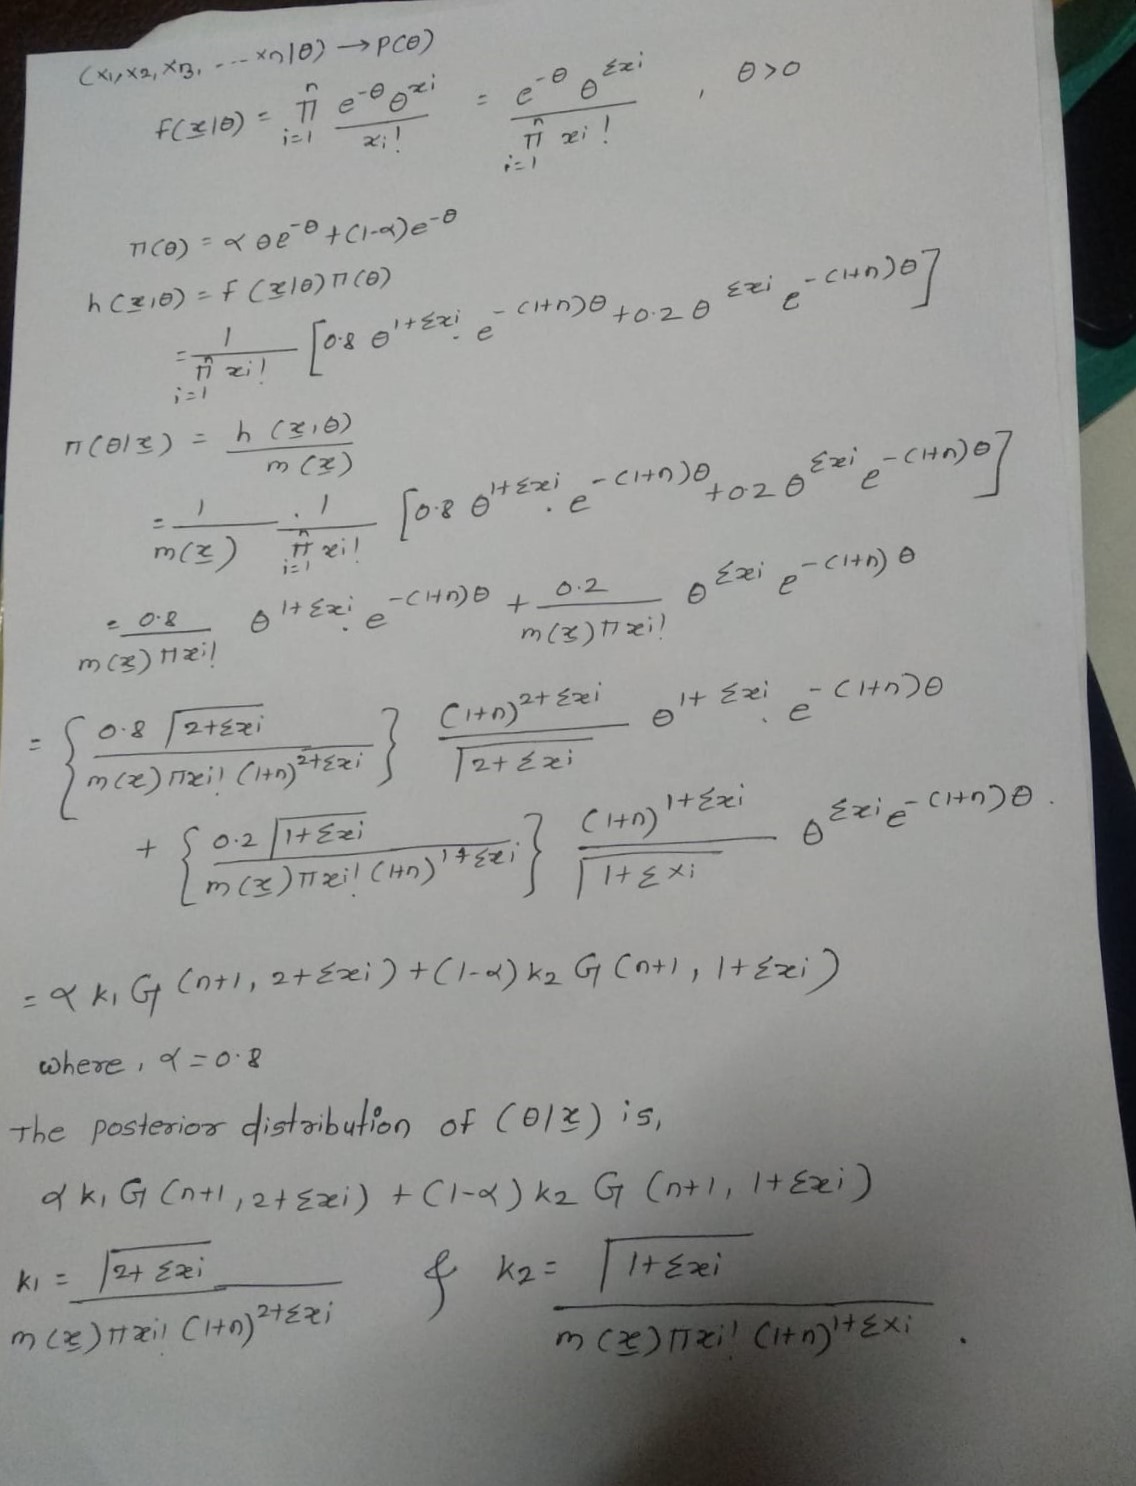 (x1, x2, x3, ... xn|θ) → P(θ)
f(x̰|θ) = n∏i=1 e^-θ θ^xi / xi! = e^-θ θ^Σxi / n∏i=1 xi! , θ>0
π(θ) = α θe^-θ + (1-α)e^-θ
h(x̰,θ) = f(x̰|θ) π(θ)
= 1 / n∏i=1 xi! [0.8 θ^1+Σxi . e^-(1+n)θ + 0.2 θ^Σxi e^-(1+n)θ]
π(θ|x̰) = h(x̰,θ) / m(x̰)
= 1 / m(x̰) . 1 / n∏i=1 xi! [0.8 θ^1+Σxi . e^-(1+n)θ + 0.2 θ^Σxi e^-(1+n)θ]
= 0.8 / m(x̰) πxi! θ^1+Σxi . e^-(1+n)θ + 0.2 / m(x̰) πxi! θ^Σxi e^-(1+n)θ
= { 0.8 Γ2+Σxi / m(x) πxi! (1+n)^2+Σxi } (1+n)^2+Σxi / Γ2+Σxi θ^1+Σxi . e^-(1+n)θ
+ { 0.2 Γ1+Σxi / m(x̰) πxi! (1+n)^1+Σxi } (1+n)^1+Σxi / Γ1+Σxi θ^Σxi e^-(1+n)θ .
= α k1 G (n+1, 2+Σxi) + (1-α) k2 G (n+1, 1+Σxi)
where, α = 0.8
The posterior distribution of (θ|x̰) is,
α k1 G (n+1, 2+Σxi) + (1-α) k2 G (n+1, 1+Σxi)
k1 = Γ2+Σxi / m(x̰) πxi! (1+n)^2+Σxi & k2 = Γ1+Σxi / m(x̰) πxi! (1+n)^1+Σxi .